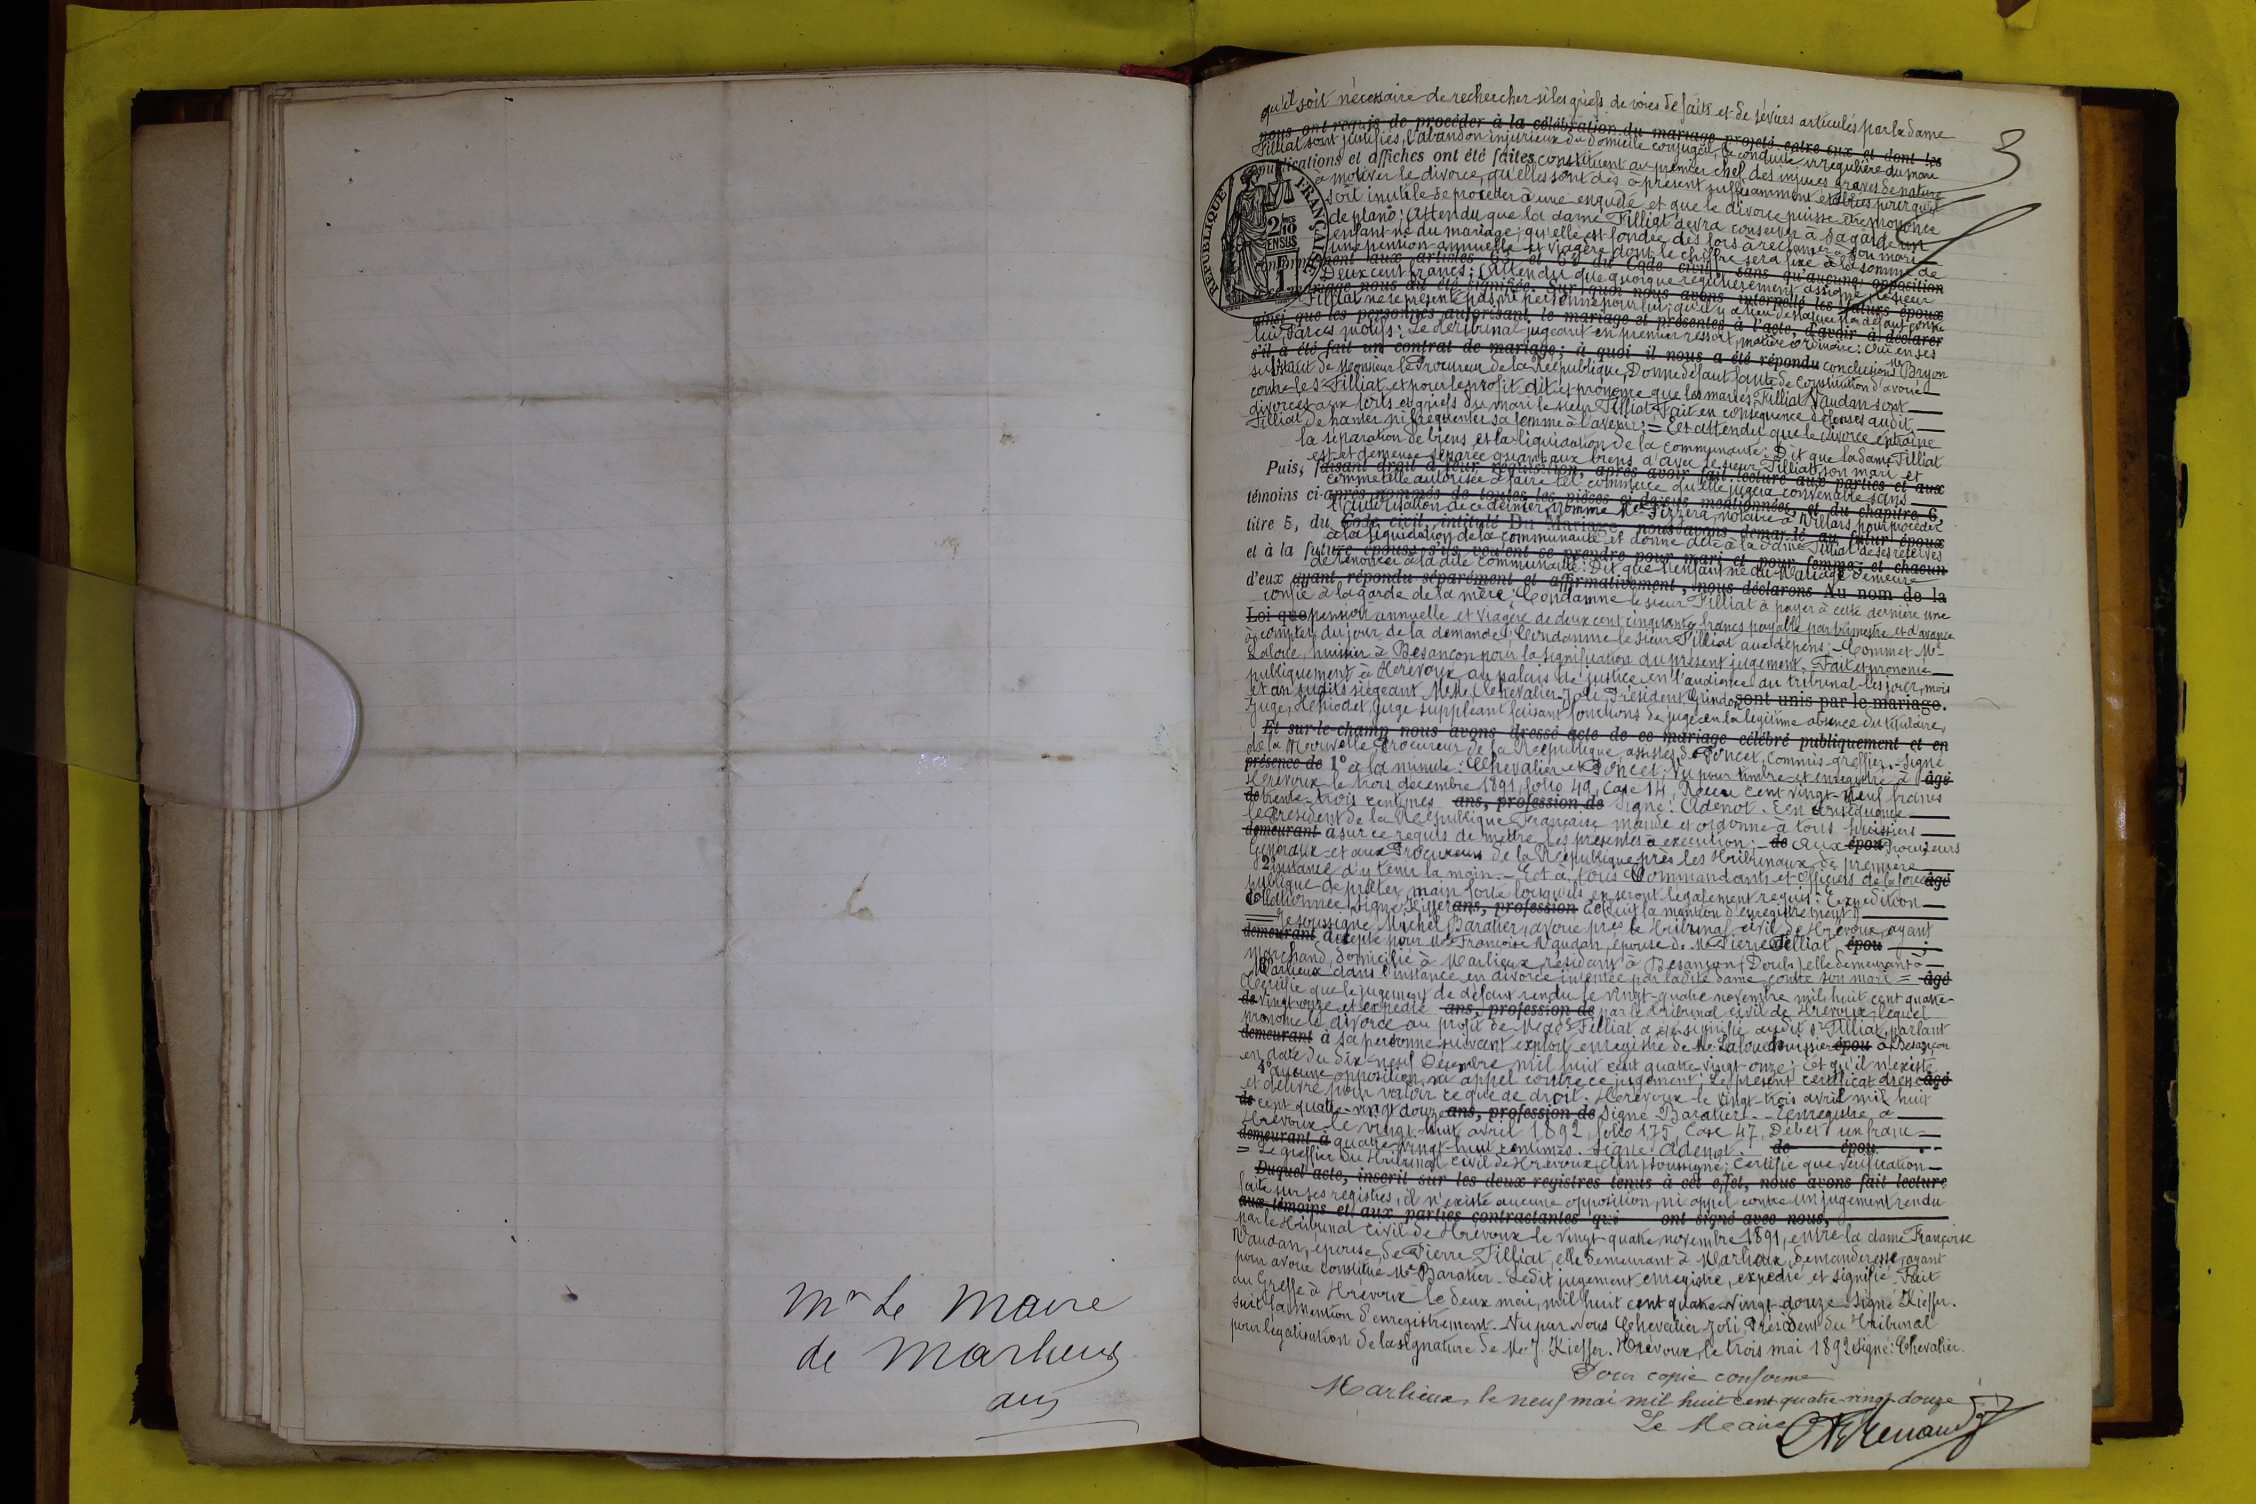 Mr le Maire
de Marlieux
Ain
3
qu'il soit nécessaire de rechercher si les griefs de voies de faits et de sévices articulés par la dame
nous ont requis de procéder à la célébration du mariage projeté entre eux et dont les
Filliat sont justifiés, l'abandon injurieux du domicile conjugal, la conduite irrégulière du mari
publications et affiches ont été faites constituent au premier chef des injures graves de nature
à motiver le divorce, qu'elles sont dès à présent suffisamment établies pour qu'il
soit inutile de procéder à une enquête et que le divorce puisse être prononcé
de plano; Attendu que la dame Filliat devra conserver à sa garde un
enfant né du mariage; qu'elle est fondée dès lors à réclamer à son mari
une pension annuelle et viagère dont le chiffre sera fixé à la somme de
conformément aux articles 63 et 64 du Code civil, sans qu'aucune opposition
Deux cent francs; Attendu que quoique régulièrement assigné, le sieur
mariage nous ait été signifiée. Sur quoi nous avons interpellé les futurs époux
Filliat ne se présente pas, ni personne pour lui; qu'il y a lieu de statuer par défaut contre
ainsi que les personnes autorisant le mariage et présentes à l'acte, d'avoir à déclarer
lui; Par ces motifs: Le Tribunal jugeant en premier ressort, matière ordinaire: Ouï en ses
s'il a été fait un contrat de mariage; à quoi il nous a été répondu conclusions Mr Bryon
substitut de Monsieur le Procureur de la République, Donne défaut faute de constitution d'avoué
contre le sr Filliat, et pour le profit, dit et prononce que les mariés Filliat Vaudan sont
divorcés aux torts et griefs du mari le sieur Filliat; Fait en conséquence défenses audit
Filliat de hanter ni fréquenter sa femme à l'avenir; = Et attendu que le divorce entraîne
la séparation de biens et la liquidation de la communauté; Dit que la dame Filliat
est et demeure séparée quant aux biens d'avec le sieur Filliat son mari et
Puis, faisant droit à leur réquisition, après avoir fait lecture aux parties et aux
comme telle autorisée à faire tel commerce qu'elle jugera convenable sans
témoins ci-après nommés de toutes les pièces ci-dessus mentionnées, et du chapitre 6,
l'autorisation de ce dernier, nomme Me notaire à Villars, pour procéder
titre 5, du Code civil, intitulé Du Mariage, nous avons demandé au futur époux
à la liquidation de la communauté et donne acte à la dame Filliat de ses réserves
et à la future épouse s'ils veulent se prendre pour mari et pour femme; et chacun
de renoncer à la dite communauté; Dit que l'enfant né du Mariage demeure
d'eux ayant répondu séparément et affirmativement, nous déclarons Au nom de la
confié à la garde de la mère; Condamne le sieur Filliat à payer à cette dernière une
Loi que pension annuelle et viagère de deux cent cinquante francs payable par trimestre et d'avance
à compter du jour de la demande; Condamne le sieur Filliat aux dépens; - Commet Me
Laloue, huissier à Besançon pour la signification du présent jugement. Fait et prononcé
publiquement à Trévoux au palais de justice en l'audience du tribunal les jour, mois
et an susdits siégeant MM. Chevalier-Joli Président, Grindon sont unis par le mariage.
Juge, juge suppléant faisant fonctions de juge en la légitime absence du titulaire,
Et sur-le-champ nous avons dressé acte de ce mariage célébré publiquement et en
de la Nouvelle, Procureur de la République, assistés de Poncet, commis-greffier. - Signé
présence de 1° à la minute: Chevalier et Poncet; Vu pour timbre et enregistré à âgé
Trévoux le trois décembre 1891, folio 49, case 14, Reçu cent vingt-neuf francs
de trente trois centimes ans, profession de Signé: Adenot. En conséquence
le Président de la République Française mande et ordonne à tous huissiers
demeurant à sur ce requis de mettre les présentes à exécution; - de Aux épou Procureurs
Généraux et aux Procureurs de la République près les Tribunaux de première
2° instance d'y tenir la main. - Et à tous Commandants et officiers de la force âgé
publique de prêter main forte lorsqu'ils en seront légalement requis: Expédition
de Collationnée, signé Kieffer ans, profession de (suit la mention d'enregistrement)
= Je soussigné Michel Baratier, avoué près le Tribunal civil de Trévoux, ayant
demeurant à occupé pour Mme Françoise Vaudan, épouse de Mr Pierre Filliat, épou
Marchand, domicilié à Marlieux, résidant à Besançon (Doubs) elle demeurant à
Marlieux dans l'instance en divorce intentée par la dite dame contre son mari = âgé
Certifie que le jugement de défaut rendu le vingt-quatre novembre mil huit cent quatre-
de vingt onze et expédié ans, profession de par le tribunal civil de Trévoux, lequel
prononce le divorce au profit de Made Filliat a été signifié audit sr Filliat, parlant
demeurant à sa personne suivant exploit enregistré de Me Laloue huissier épou à Besançon
en date du dix-neuf Décembre mil huit cent quatre vingt-onze; Et qu'il n'existe
4° aucune opposition, ni appel contre ce jugement; Le présent certificat dressé âgé
et délivré pour valoir ce que de droit. Trévoux le vingt-trois avril mil huit
de cent quatre-vingt douze ans, profession de Signé Baratier. - Enregistré à
Trévoux le vingt-huit avril 1892, folio 175, Case 47, Débet un franc
demeurant à quatre vingt-huit centimes. Signé: Adenot. de épou
= Le greffier du Tribunal civil de Trévoux (Ain) soussigné; Certifie que vérification
Duquel acte, inscrit sur les deux registres tenus à cet effet, nous avons fait lecture
faite sur ses registres, il n'existe aucune opposition, ni appel contre un jugement rendu
aux témoins et aux parties contractantes qui ont signé avec nous,
par le Tribunal civil de Trévoux le vingt-quatre novembre 1891, entre la dame Françoise
Vaudan, épouse de Pierre Filliat, elle demeurant à Marlieux, demanderesse, ayant
pour avoué constitué Me Baratier. Ledit jugement enregistré, expédié et signifié. Fait
au Greffe à Trévoux le deux mai, mil huit cent quatre-vingt-douze. Signé Kieffer.
suit la mention d'enregistrement. - Vu par nous Chevalier-Joli, Président du Tribunal
pour légalisation de la signature de Me J. Kieffer. Trévoux, le trois mai 1892 signé: Chevalier.
Pour copie conforme
Marlieux, le neuf mai mil huit cent quatre-vingt-douze
Le Maire
RÉPUBLIQUE FRANÇAISE